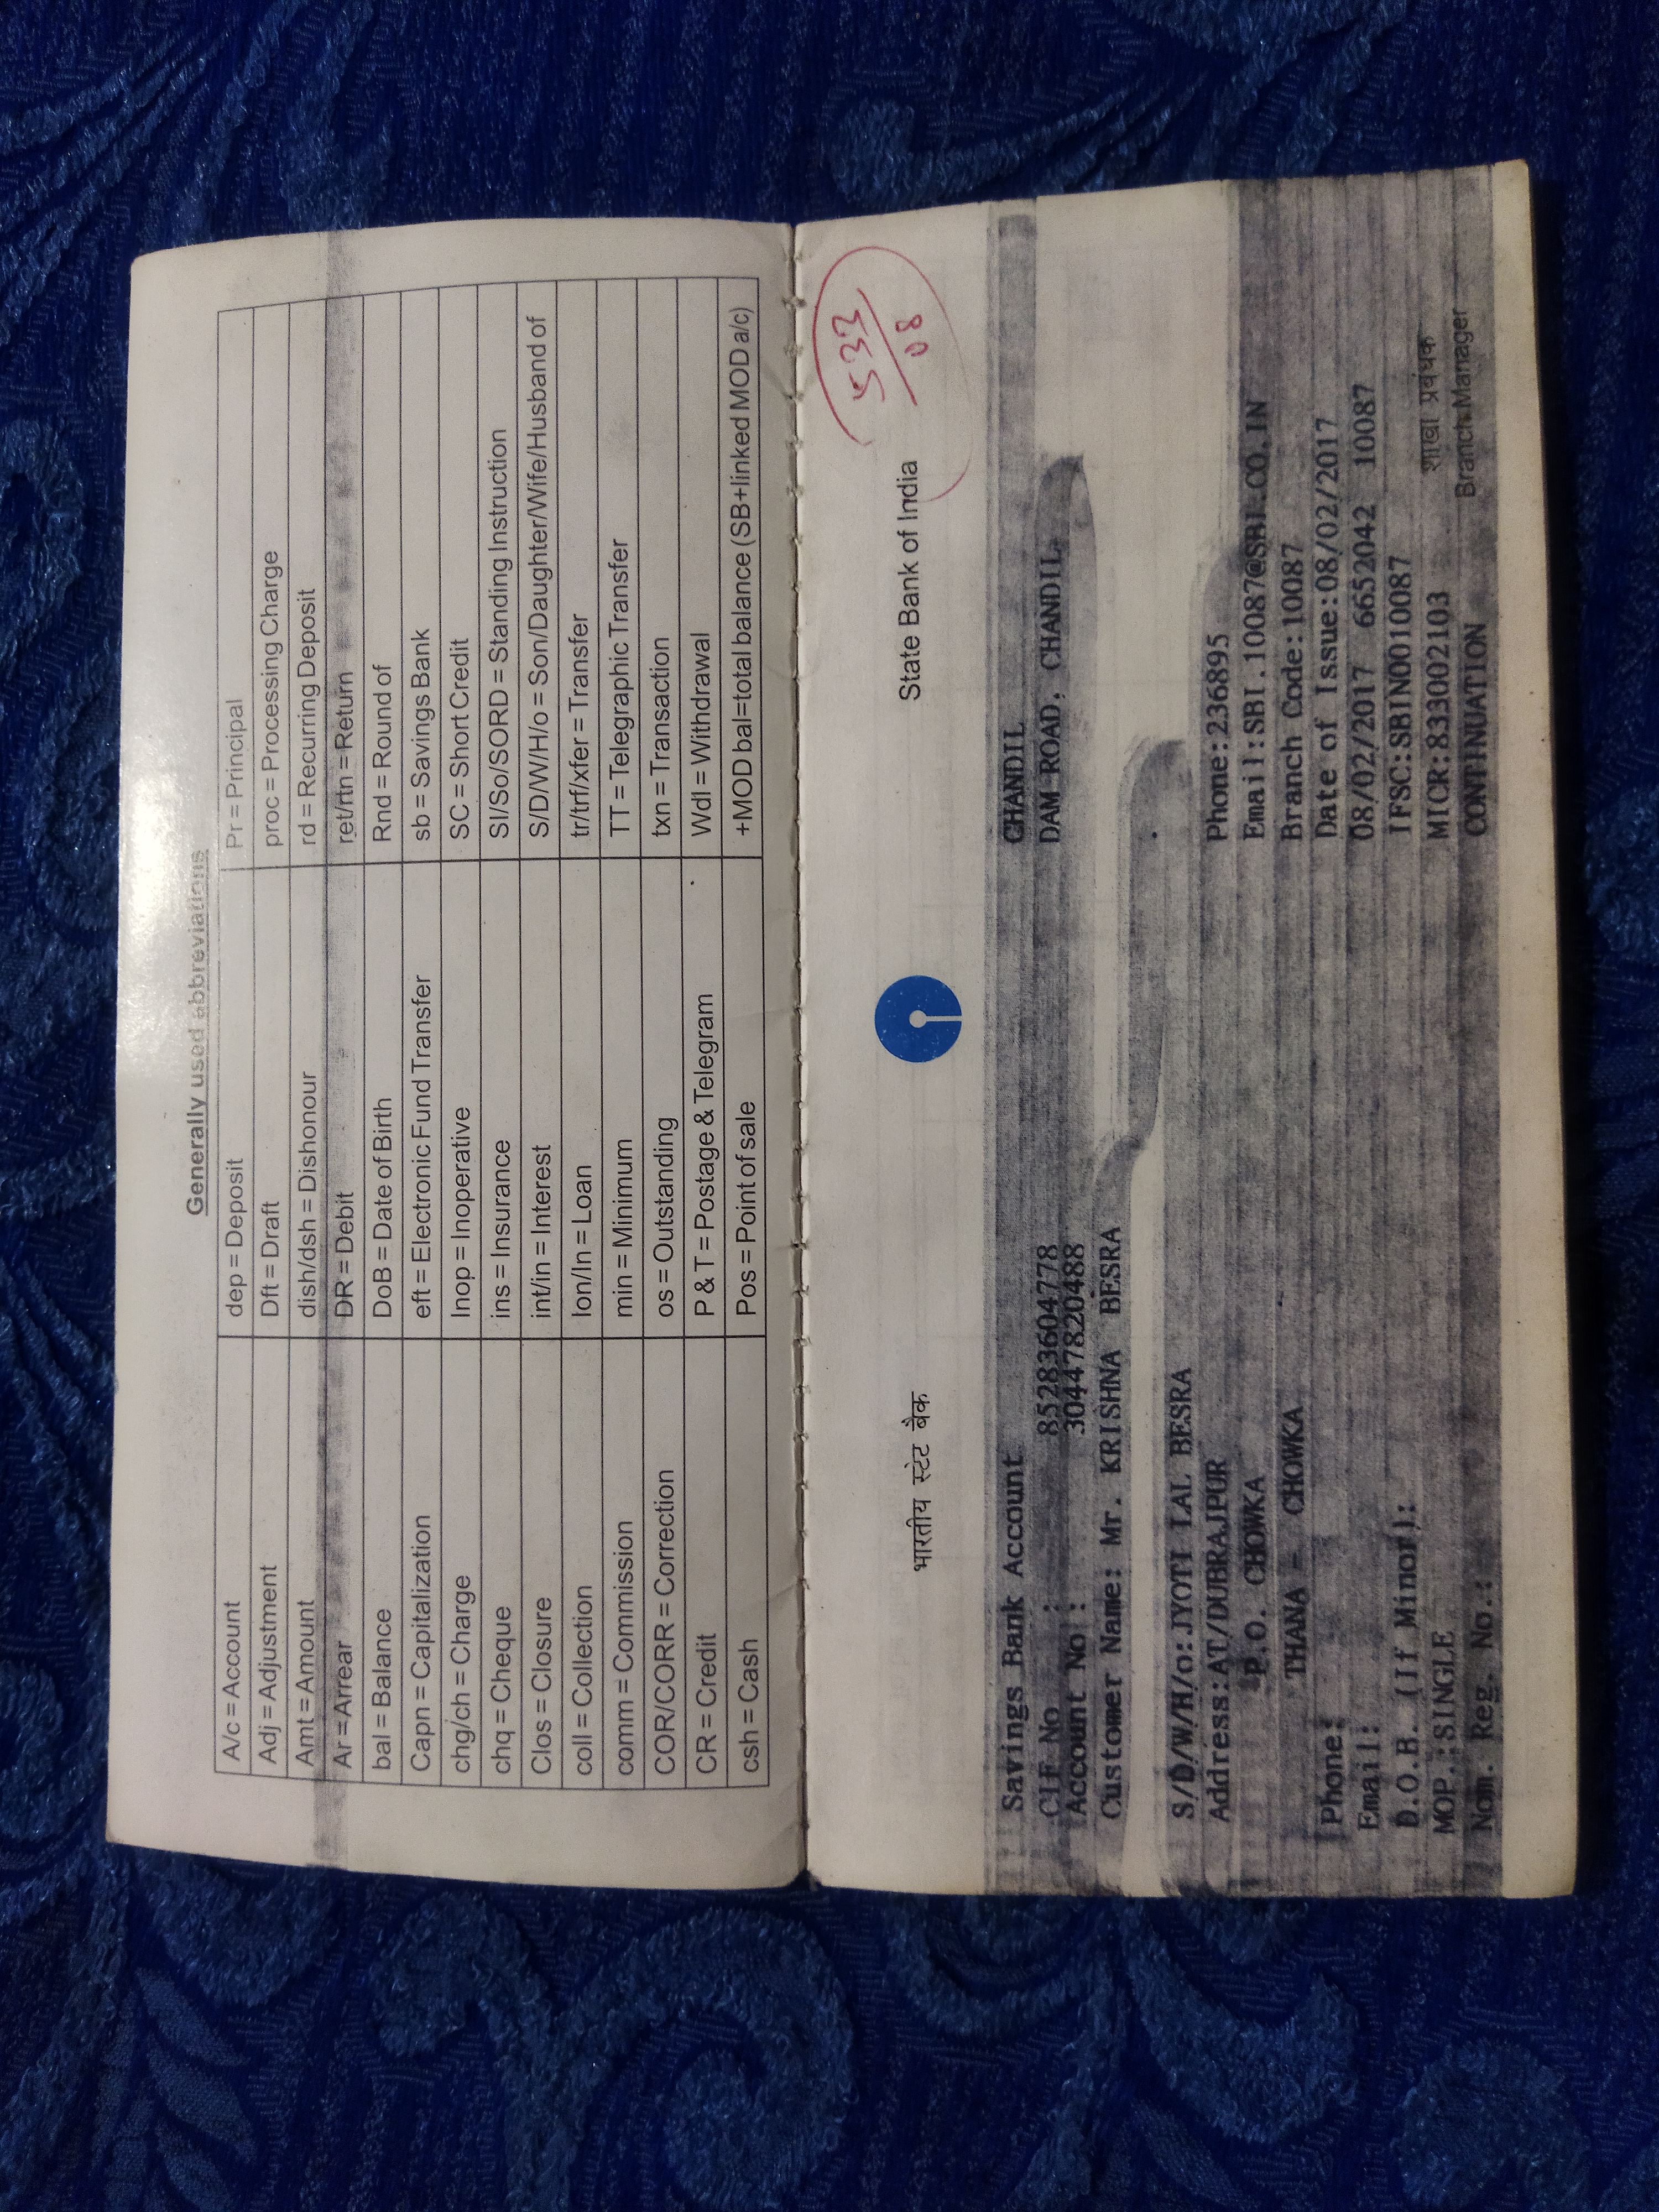 Generally used abbreviations
A/c = Account dep = Deposit Pr = Principal
Adj = Adjustment Dft = Draft proc = Processing Charge
Amt = Amount dish/dsh = Dishonour rd = Recurring Deposit
Ar = Arrear DR = Debit ret/rtn = Return
bal = Balance DoB = Date of Birth Rnd = Round of
Capn = Capitalization eft = Electronic Fund Transfer sb = Savings Bank
chg/ch = Charge Inop = Inoperative SC = Short Credit
chq = Cheque ins = Insurance SI/So/SORD = Standing Instruction
Clos = Closure int/in = Interest S/D/W/H/o = Son/Daughter/Wife/Husband of
coll = Collection lon/ln = Loan tr/trf/xfer = Transfer
comm = Commission min = Minimum TT = Telegraphic Transfer
COR/CORR = Correction os = Outstanding txn = Transaction
CR = Credit P & T = Postage & Telegram Wdl = Withdrawal
csh = Cash Pos = Point of sale +MOD bal=total balance (SB+linked MOD a/c)
533
08
भारतीय स्टेट बैंक State Bank of India
Savings Bank Account CHANDIL
CIF No : 85283604778 DAM ROAD, CHANDIL
Account No : 30447820488
Customer Name: Mr. KRISHNA BESRA
S/D/W/H/o: JYOTI LAL BESRA
Address: AT/DUBRAJPUR Phone:236895
P.O. CHOWKA Email:SBI.10087@SBI.CO.IN
THANA - CHOWKA Branch Code:10087
Phone: Date of Issue:08/02/2017
Email: 08/02/2017 6652042 10087
D.O.B. (If Minor): IFSC:SBIN0010087
MOP.:SINGLE MICR:833002103 शाखा प्रबंधक
Nom. Reg. No.: CONTINUATION Branch Manager